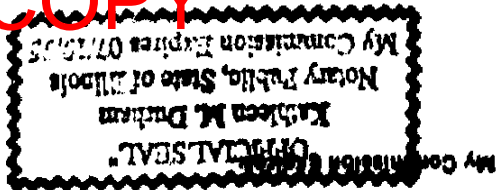 COPY
"OFFICIAL SEAL"
Kathleen M. Durham
Notary Public, State of Illinois
My Commission Expires
My Commission